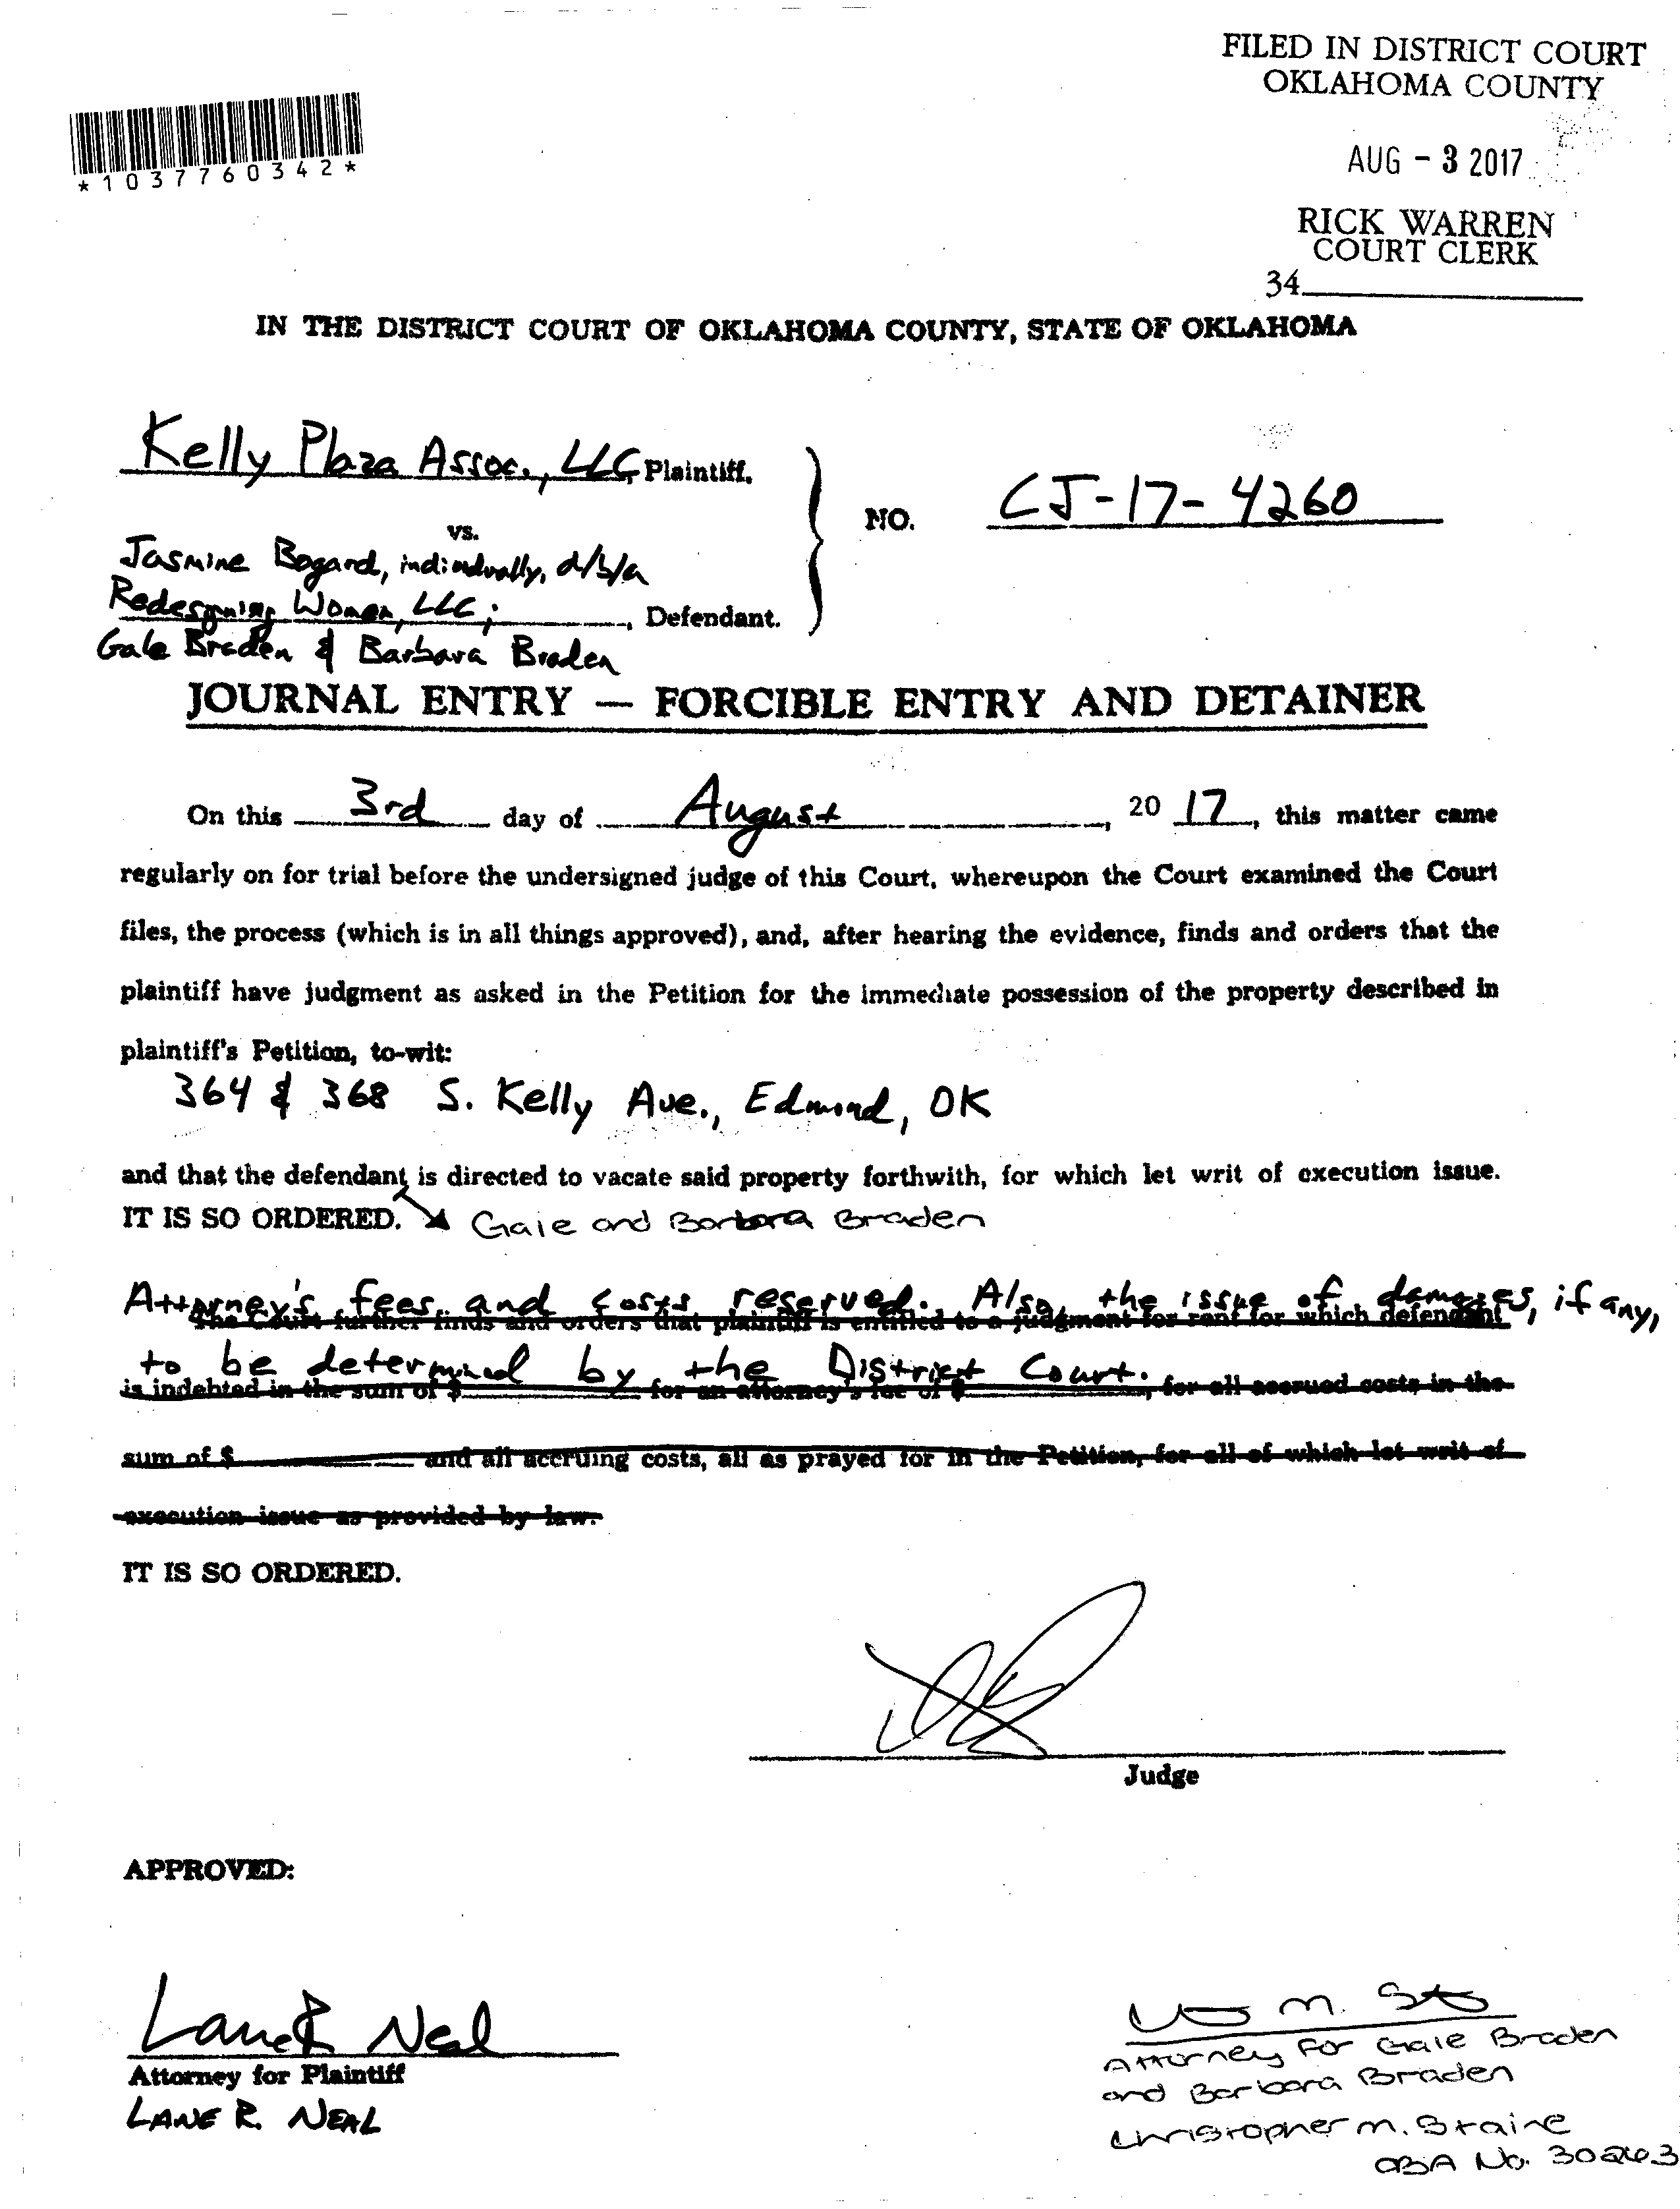 FILED IN DISTRICT COURT
OKLAHOMA COUNTY
AUG - 3 2017
RICK WARREN
COURT CLERK
34
*1037760342*
IN THE DISTRICT COURT OF OKLAHOMA COUNTY, STATE OF OKLAHOMA
Kelly Plaza Assoc., LLC, Plaintiff,
vs.
NO. CJ-17-4260
Jasmine Bogard, individually, d/b/a
Redesigning Women, LLC; , Defendant.
Gale Braden & Barbara Braden
JOURNAL ENTRY — FORCIBLE ENTRY AND DETAINER
On this 3rd day of August, 20 17, this matter came
regularly on for trial before the undersigned judge of this Court, whereupon the Court examined the Court
files, the process (which is in all things approved), and, after hearing the evidence, finds and orders that the
plaintiff have judgment as asked in the Petition for the immediate possession of the property described in
plaintiff's Petition, to-wit:
364 & 368 S. Kelly Ave., Edmond, OK
and that the defendant is directed to vacate said property forthwith, for which let writ of execution issue.
IT IS SO ORDERED. Gale and Barbara Braden
Attorney's fees and costs reserved. Also, the issue of damages, if any,
The Court further finds and orders that plaintiff is entitled to a judgment for rent for which defendant
to be determined by the District Court.
is indebted in the sum of $ for an attorney's fee of $ , for all accrued costs in the
sum of $ and all accruing costs, all as prayed for in the Petition, for all of which let writ of
execution issue as provided by law.
IT IS SO ORDERED.
Judge
APPROVED:
Lane R Neal
Attorney for Plaintiff
LANE R. NEAL
Attorney for Gale Braden
and Barbara Braden
Christopher M. Staine
OBA No. 30263